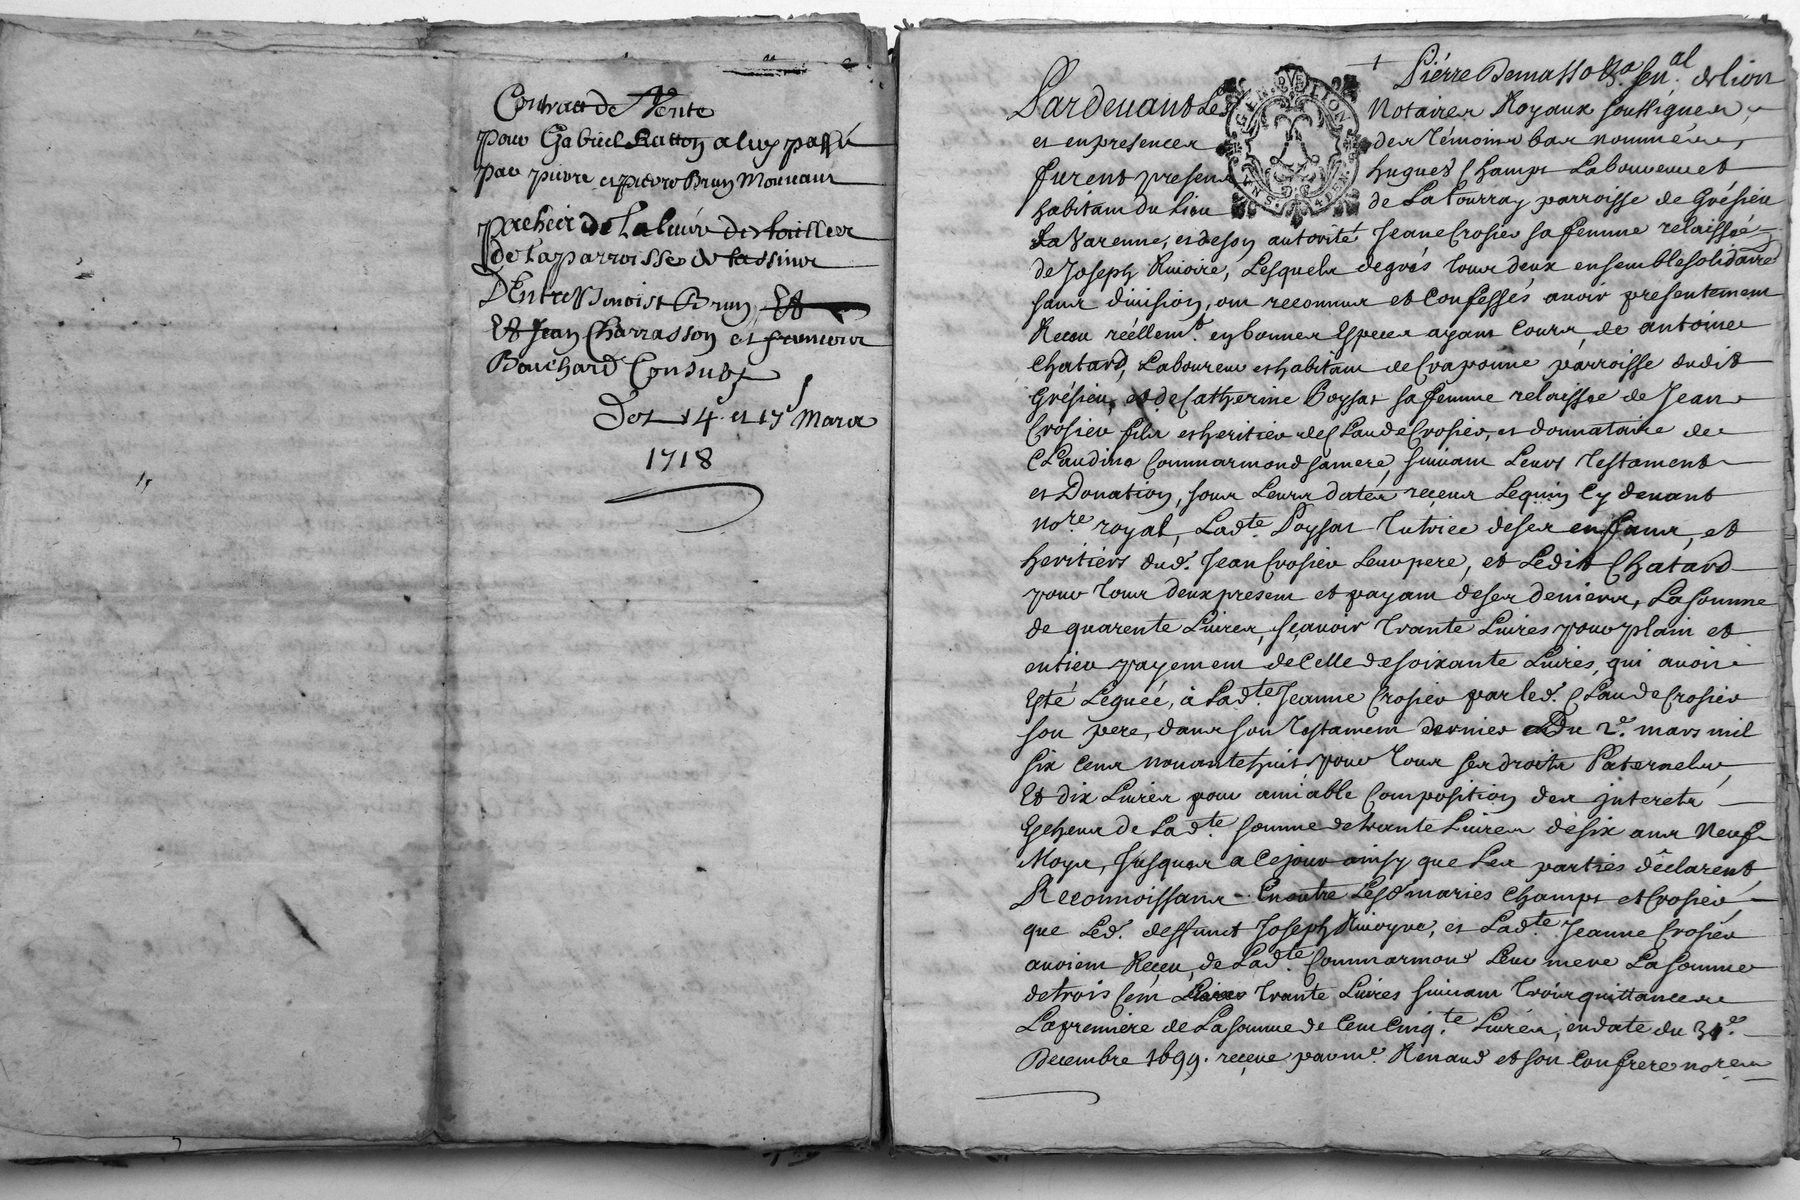 Contract de Vente
pour Gabriel Ratton a luy passé
par pierre et pierre Brun
de tailles
de la parroisse de tassins
D'Entre Benoist Brun, Et
Et Jean Charrasson et
Bouchard Consuls
Des 14 et 15 Mars
1718
Pierre Demasso sen.al de lion
Pardeuant Les Notaires Royaux soussignes,
et en presences des témoins bas nommés,
furent presens hugues Champs Laboureur et
habitans du Lieu de La tourray parroisse de Grésieu
La Varenne, et de son autorité Jeane Crosier sa femme relaissée
de Joseph Riuoire, Lesquels de grés tous deux ensemble solidaires
sans diuision, ont reconnus et Confessés auoir presentement
Receu réellem.t en bonnes Especes ayant Cours, de antoine
Chatard, Laboureur et habitant de Craponne parroisse dudit
Grésieu, et de Catherine Poysat sa femme relaissée de Jean
Crosier fils et heritier de Claude Crosier, et donnataire de
Claudine Commarmond sa mere, suiuant Leurs Testaments
et Donation, sous Leurs dates receus Lequin Cy deuant
no.re royal, Lad.te Poysat tutrice de ses enfans, et
heritiers dud. Jean Crosier Leur pere, et Ledit Chatard
pour tous deux present et payant de ses deniers, La somme
de quarente Liures, sçauoir trante Liures pour plain et
entier payement de Celle de soixante Liures, qui auoit
Esté Leguée, à Lad.te Jeanne Crosier par led. Claude Crosier
son pere, dans son Testament dernier Du 2.e mars mil
six Cens nouante huit, pour tous ses droits Paternels,
Et dix Liures pour amiable Composition des jnterets
Escheus de Lad.te somme de trante Liures dé six ans Neuf
Moys, Jusques a Ce jour ainsy que Les parties déclarent,
Reconnoissans En outre Lesd mariés Champs et Crosier,
que Led. deffunct Joseph Riuoyre, et Lad.te Jeanne Crosier
auoient Reçeu de Lad.te Commarmond Leur mere La somme
de trois Cent trante Liures suiuant trois quittances
La premiere de La somme de Cent Cinq.te Liures, en date du 31.e
Decembre 1699. reçeue par m.e Renaud et son Confrere no.res